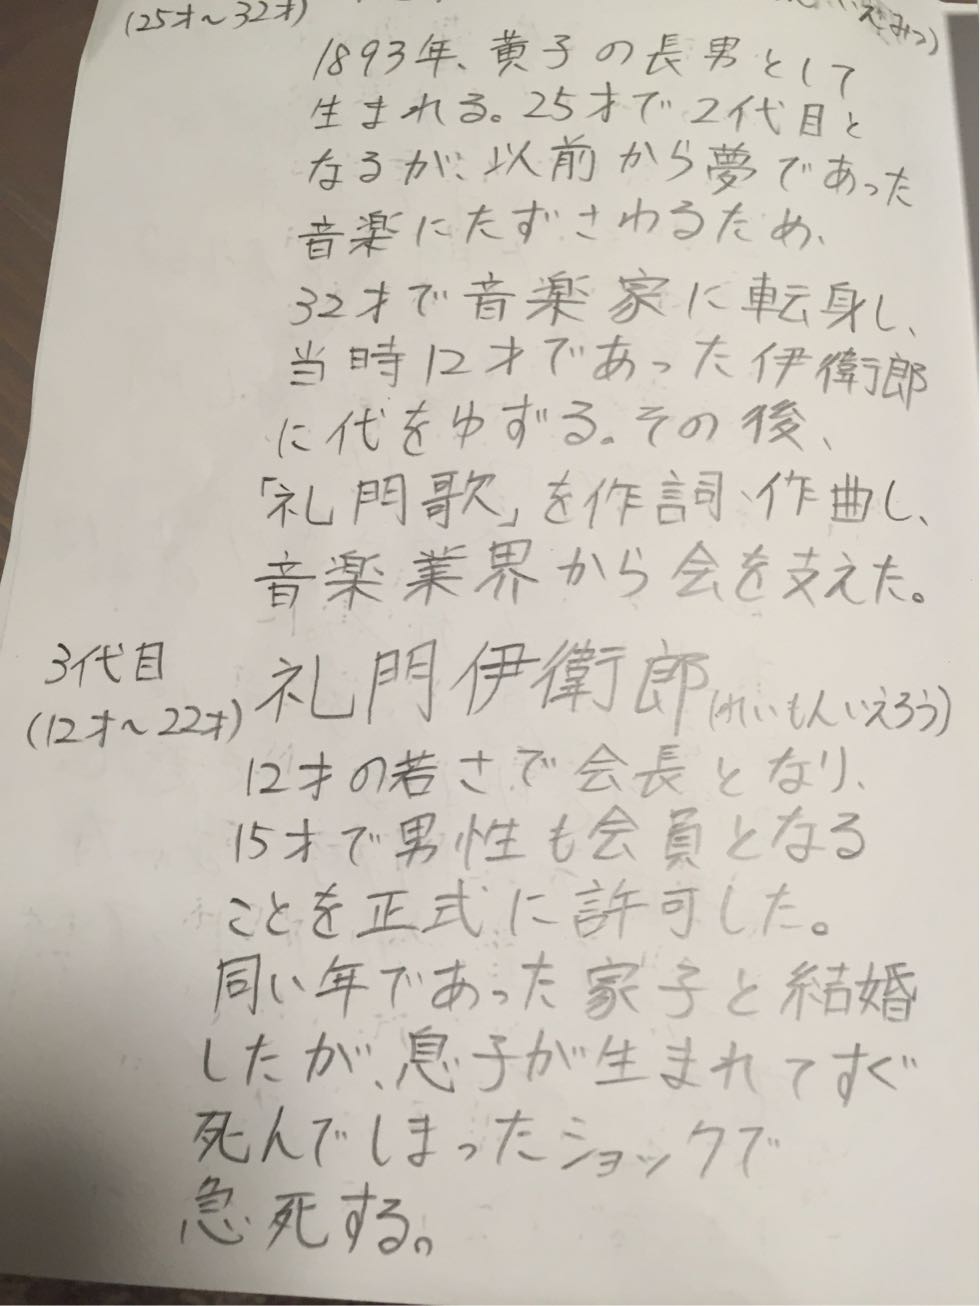 (25才～32才)
いえみつ)
1893年、黄子の長男として
生まれる。25才で2代目と
なるが、以前から夢であった
音楽にたずさわるため、
32才で音楽家に転身し、
当時12才であった伊衛郎
に代をゆずる。その後、
「礼門歌」を作詞、作曲し、
音楽業界から会を支えた。
3代目 礼門伊衛郎(れいもんいえろう)
(12才～22才)
12才の若さで会長となり、
15才で男性も会員となる
ことを正式に許可した。
同い年であった家子と結婚
したが、息子が生まれてすぐ
死んでしまったショックで
急死する。